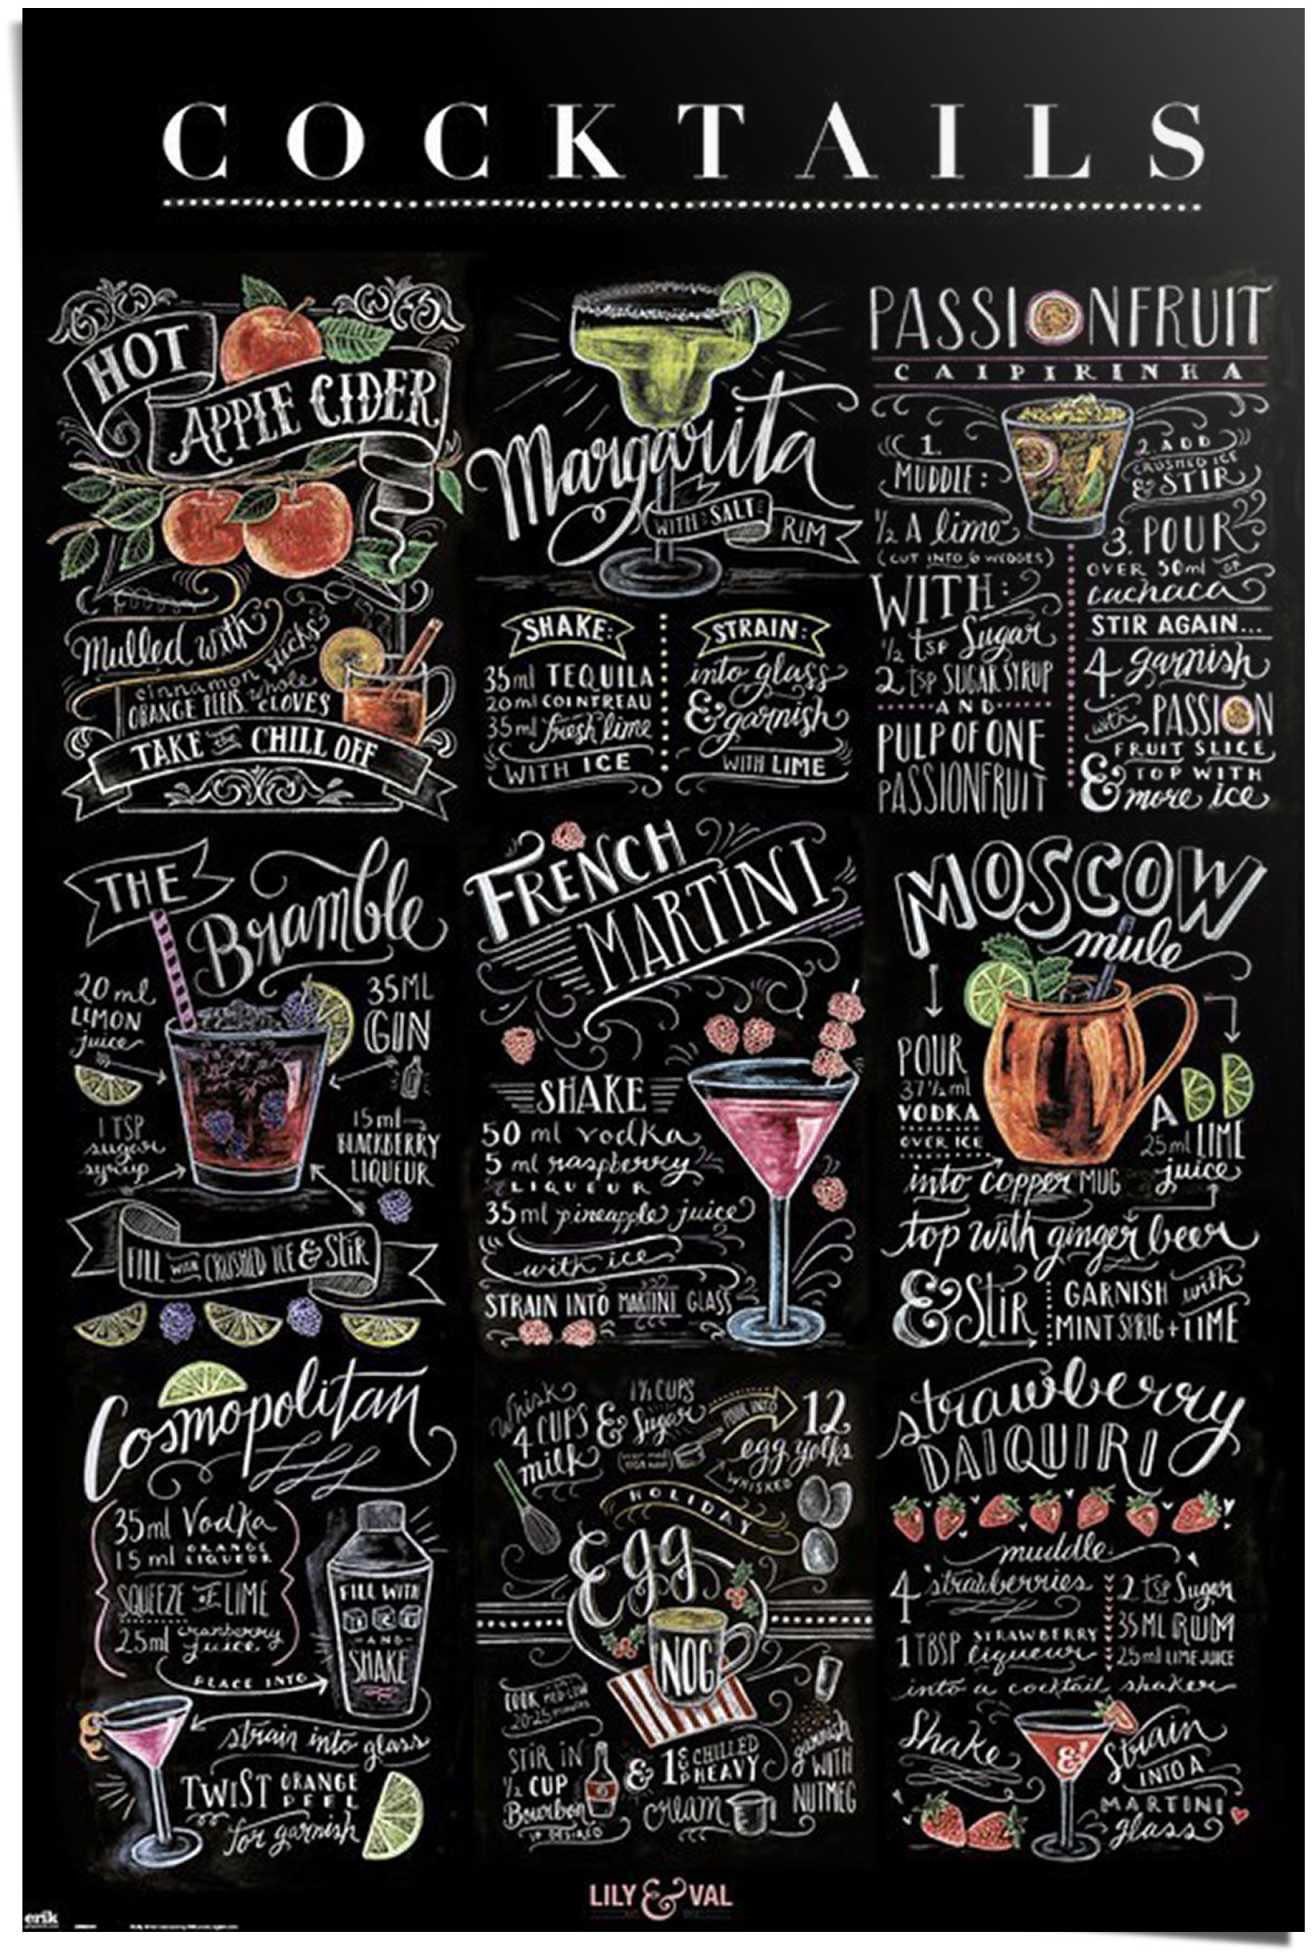 COCKTAILS
HOT
APPLE CIDER
Mulled with
cinnamon sticks
ORANGE PEELS. whole CLOVES
TAKE THE CHILL OFF
Margarita
WITH SALT
RIM
SHAKE:
35ml TEQUILA
20ml COINTREAU
35ml fresh lime
WITH ICE
STRAIN:
into glass
& garnish
WITH LIME
PASSIONFRUIT
CAIPIRINHA
1.
MUDDLE:
1/2 A lime
(CUT INTO 6 WEDGES)
WITH:
1/2 tsp Sugar
2 tsp SUGAR SYRUP
AND
PULP OF ONE
PASSIONFRUIT
2. ADD
CRUSHED ICE
& STIR
3. POUR
OVER 50ml OF
cachaca
STIR AGAIN...
4 garnish
with PASSION
FRUIT SLICE
& TOP WITH
more ice
THE
Bramble
20 ml
LEMON
juice
1 TSP
sugar
syrup
35ML
GIN
15ml
BLACKBERRY
LIQUEUR
FILL WITH CRUSHED ICE & STIR
FRENCH
MARTINI
SHAKE
50 ml vodka
5 ml raspberry
LIQUEUR
35ml pineapple juice
with ice
STRAIN INTO MARTINI GLASS
MOSCOW
mule
POUR
37 1/2 ml
VODKA
OVER ICE
into copper MUG
ADD
25ml LIME
juice
top with ginger beer
& Stir
GARNISH with
MINT SPRIG + LIME
Cosmopolitan
35ml Vodka
15 ml ORANGE
LIQUEUR
SQUEEZE OF LIME
25ml cranberry
juice
PLACE INTO
FILL WITH
ICE
AND
SHAKE
strain into glass
TWIST ORANGE
PEEL
for garnish
Whisk
4 CUPS
milk
& 1 1/2 CUPS
Sugar
POUR INTO
12
egg yolks
WHISKED
HOLIDAY
Egg
NOG
COOK MED-LOW
20-25 minutes
STIR IN
1/2 CUP
Bourbon
IF DESIRED
& 1 C CHILLED
HEAVY
cream
garnish
WITH
NUTMEG
strawberry
DAIQUIRI
muddle
4 strawberries
1 TBSP STRAWBERRY
liqueur
2 tsp Sugar
35 ML RUM
25ml LIME JUICE
into a cocktail shaker
Shake
&
Strain
INTO A
MARTINI
glass
LILY & VAL
erik